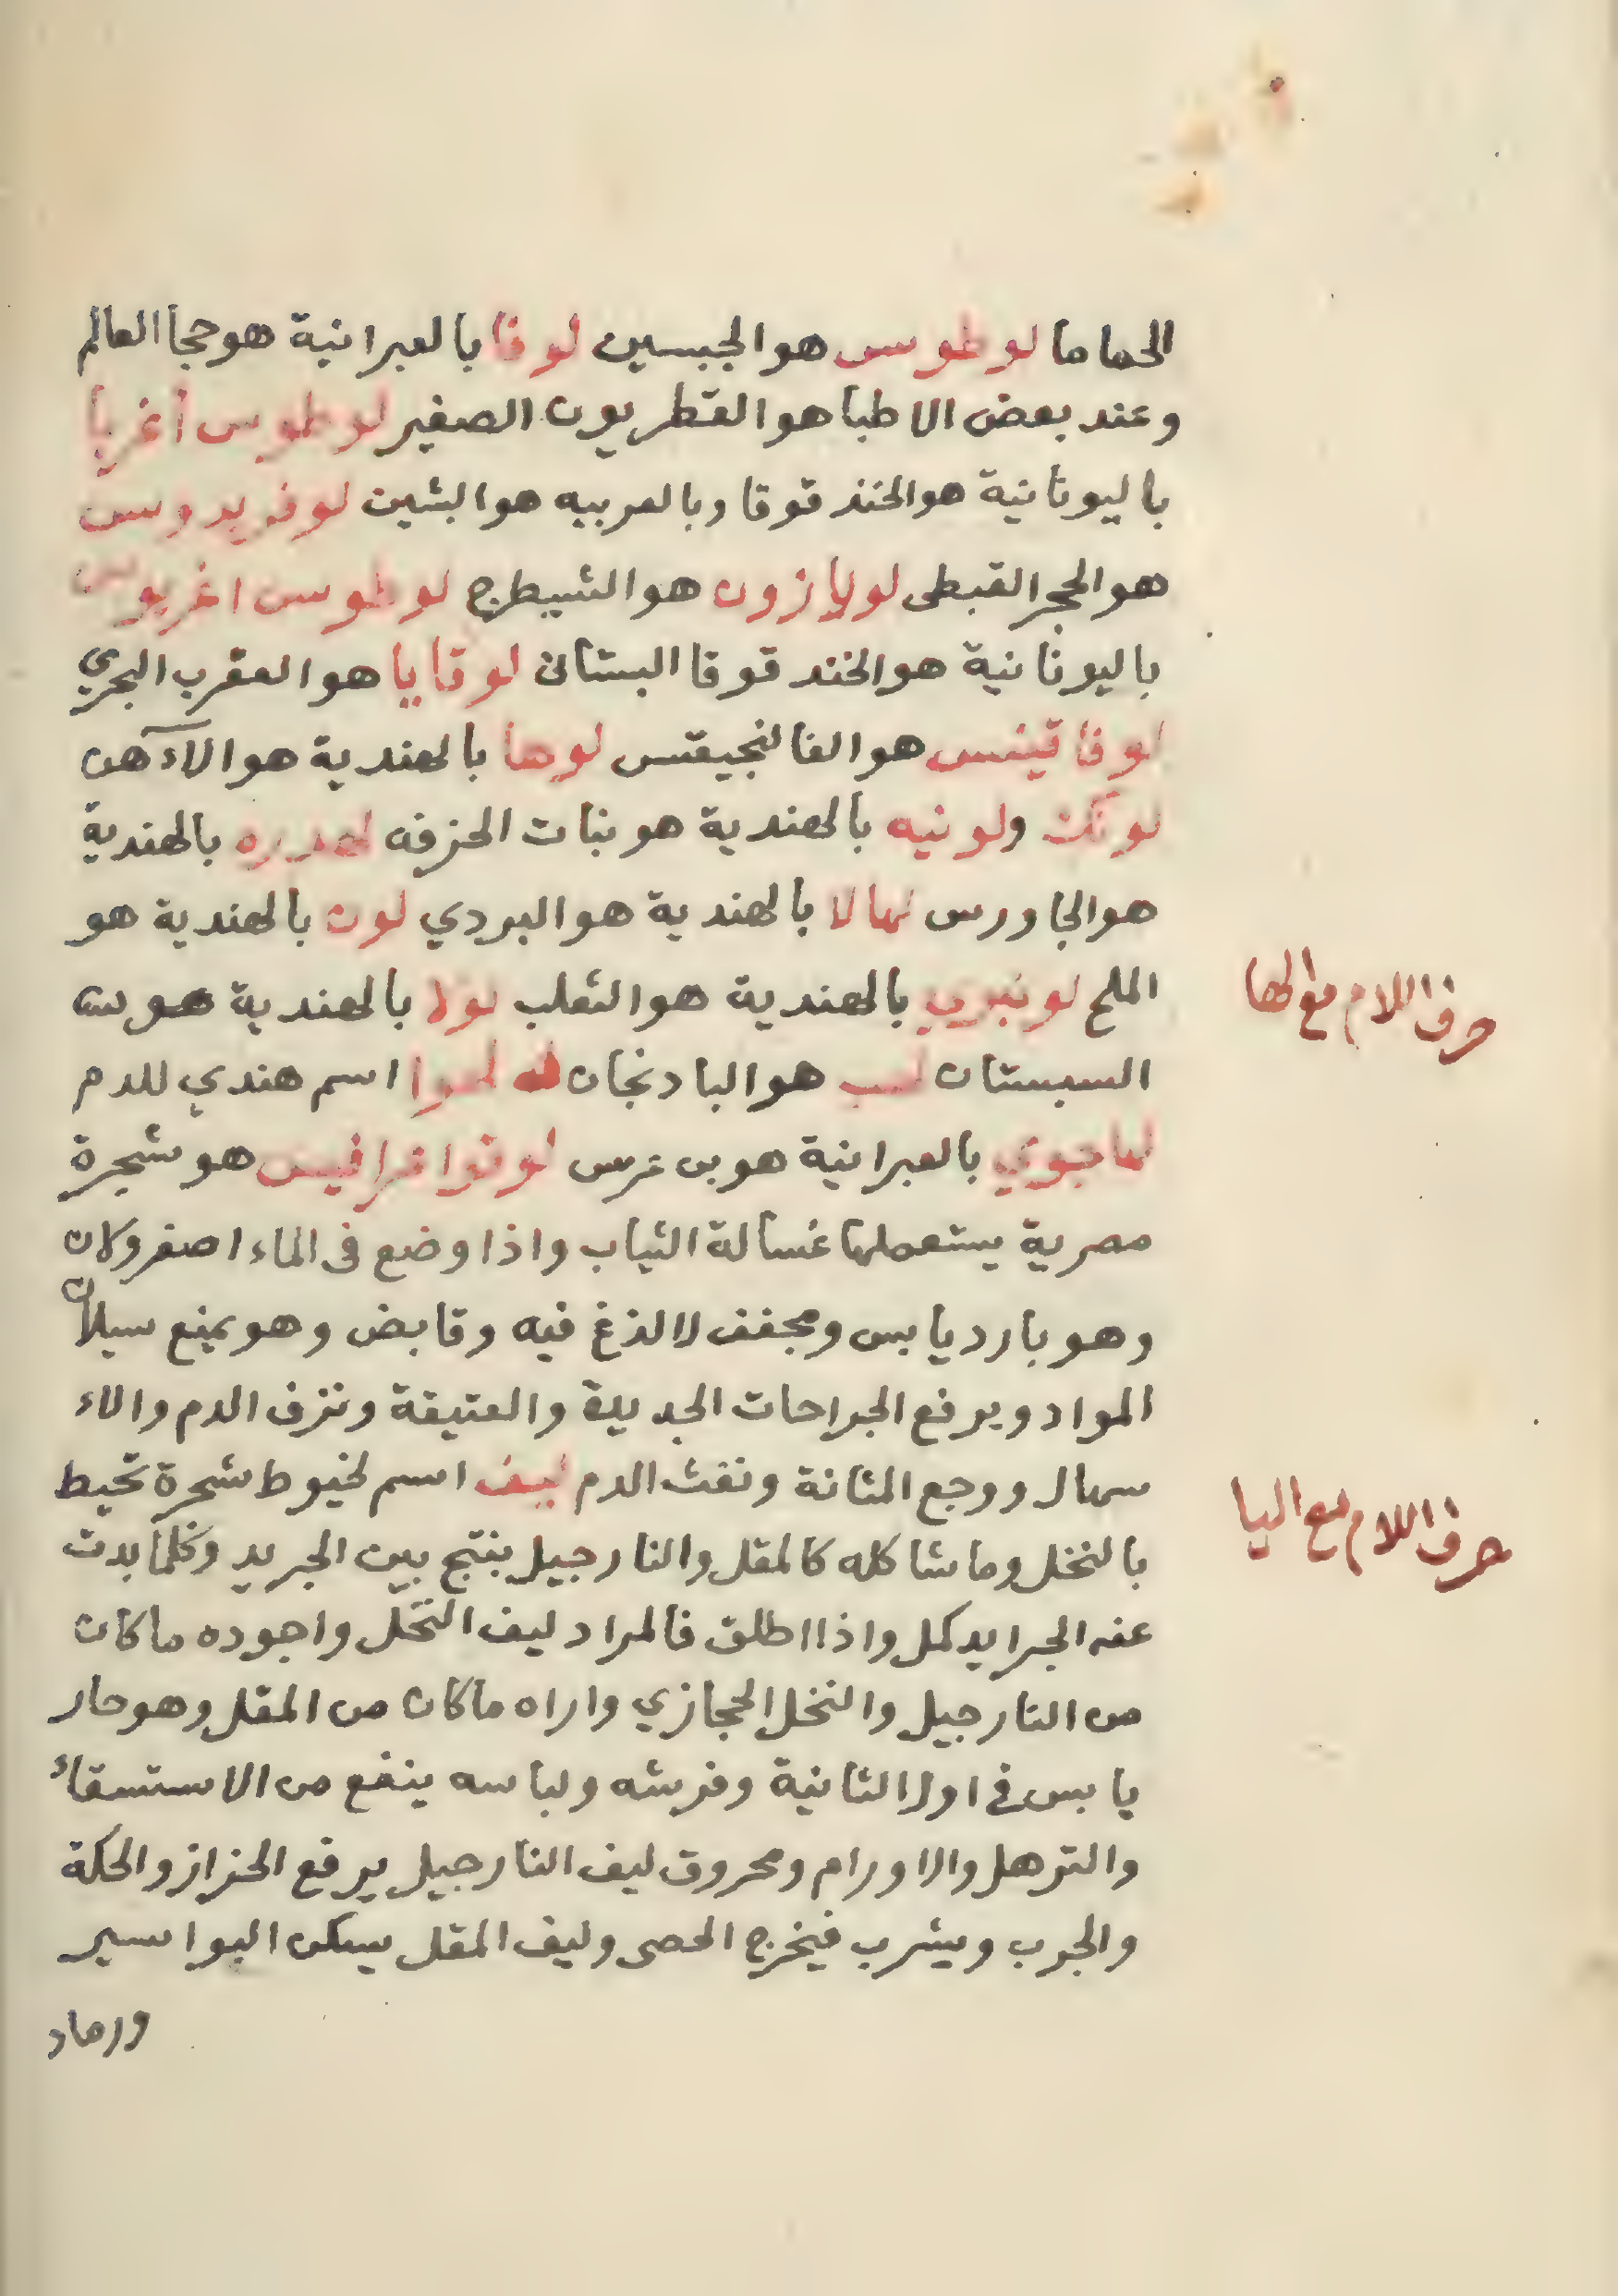 الحماما لوطوس هو الجبسين لوفا بالعبرانية هو حجا العالم
وعند بعض الاطبا هو القطريون الصغير لوطوس أغريا
باليونانية هو الحندقوقا وبالعربيه هو البشين لوفريدوس
هو الحجر القبطى لولازون هو الشيطرج لوطوس اغريوس
باليونانية هو الخندقوقا البستانى لوقايا هو العقرب البحري
لوفاقينس هو الفالنجيقس لوها بالهندية هو الآهن
لونك ولونيه بالهندية هو بنات الخرفه بالهندية
هو الجاورس لهالا بالهندية هو البردي لون بالهندية هو
الملح لونبري بالهندية هو الثعلب لولا بالهندية هو
السبستان هو البادنجان لهوا اسم هندي للدم
لهاجوي بالعبرانية هو بن عرس لوقواغرافيس هو شجرة
مصرية يستعملها غسالة الثياب واذا وضع فى الماء اصفر ولان
وهو بارد يابس ومجفف لا لذغ فيه وقابض وهو يمنع سيلان
المواد ويرفع الجراحات الجديدة والعتيقة ونزف الدم والاء
سهال ووجع المثانة ونفث الدم ليف اسم لخيوط شجرة تحيط
بالنخل وما شاكله كالمقل والنارجيل ينتج بين الجريد وكلما بدت
عنه الجرايد كمل واذا اطلق فالمراد ليف النخل واجوده ما كان
من النارجيل والنخل الحجازي واراه ما كان من المقل وهو حار
يابس فى اول الثانية وفرشه ولباسه ينفع من الاستسقاء
والترهل والاورام ومحروق ليف النارجيل يرفع الحزاز والحكة
والجرب ويشرب فيخرج الحصى وليف المقل يسكن البواسير
ورماد
حرف اللام مع الها
حرف اللام مع اليا